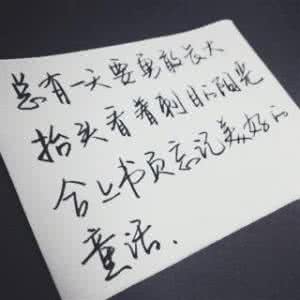 总有一天要勇敢长大
抬头看着刺目的阳光
合上书页忘记美好的
童话.